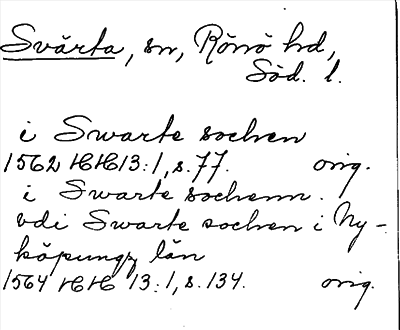 Svärta, sn, Rönö hd,
Söd. l.
i Swarte sochen
1562 HH 13:1, s. 77. orig.
i Swarte sochenn.
vdi Swarte sochen i Ny-
köpungz län
1564 HH 13:1, s. 134. orig.